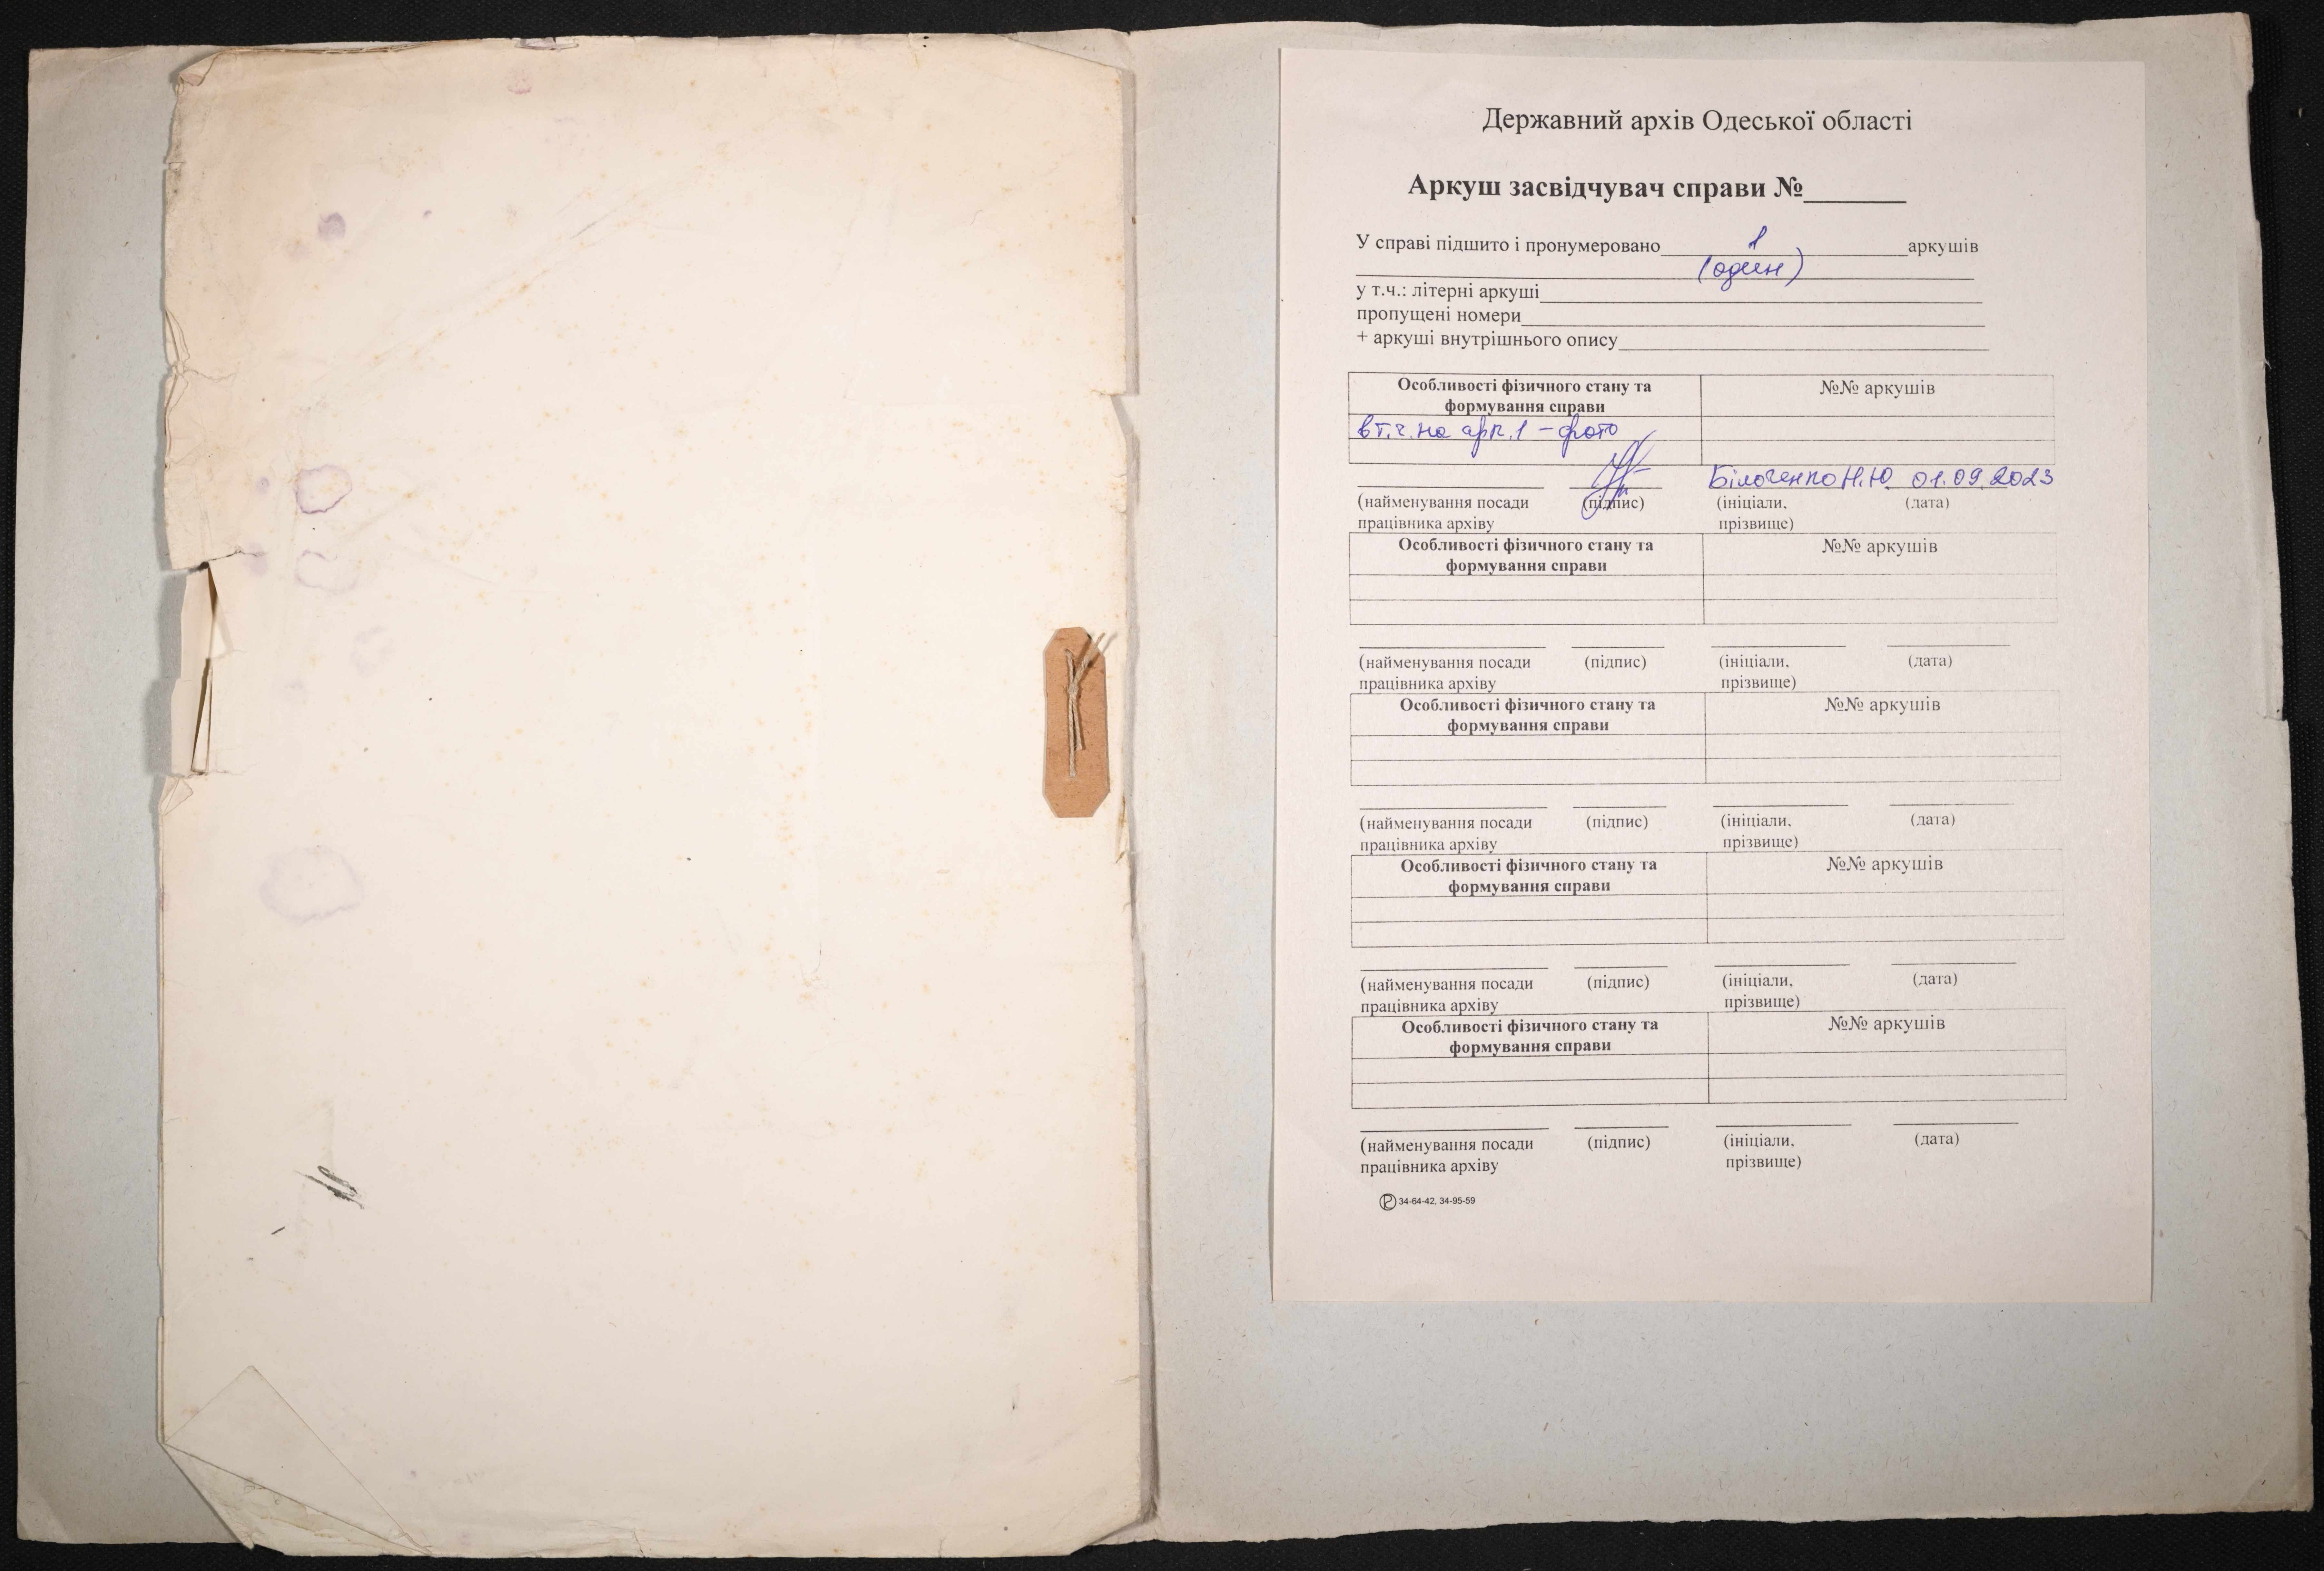 Державний архів Одеської області
Аркуш засвідчувач справи №
У справі підшито і пронумеровано 1 аркушів
(один)
у т.ч.: літерні аркуші
пропущені номери
+ аркуші внутрішнього опису
Особливості фізичного стану та №№ аркушів
формування справи
в т.ч. на арк. 1 - фото
Білоченко Н.Ю 01.09.2023
(найменування посади (підпис) (ініціали, (дата)
працівника архіву прізвище)
Особливості фізичного стану та №№ аркушів
формування справи
(найменування посади (підпис) (ініціали, (дата)
працівника архіву прізвище)
Особливості фізичного стану та №№ аркушів
формування справи
(найменування посади (підпис) (ініціали, (дата)
працівника архіву прізвище)
Особливості фізичного стану та №№ аркушів
формування справи
(найменування посади (підпис) (ініціали, (дата)
працівника архіву прізвище)
Особливості фізичного стану та №№ аркушів
формування справи
(найменування посади (підпис) (ініціали, (дата)
працівника архіву прізвище)
34-64-42, 34-95-59